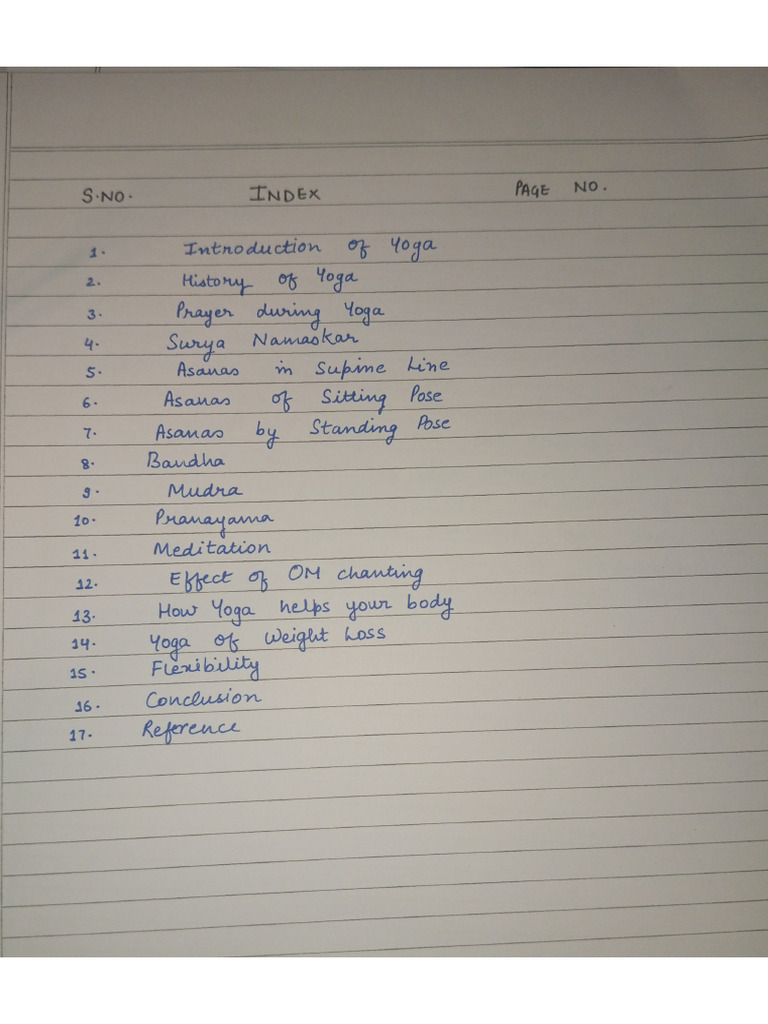 S.NO. INDEX PAGE NO.
1. Introduction of Yoga
2. History of Yoga
3. Prayer during Yoga
4. Surya Namaskar
5. Asanas in Supine Line
6. Asanas of Sitting Pose
7. Asanas by Standing Pose
8. Bandha
9. Mudra
10. Pranayama
11. Meditation
12. Effect of OM chanting
13. How Yoga helps your body
14. Yoga of Weight Loss
15. Flexibility
16. Conclusion
17. Reference